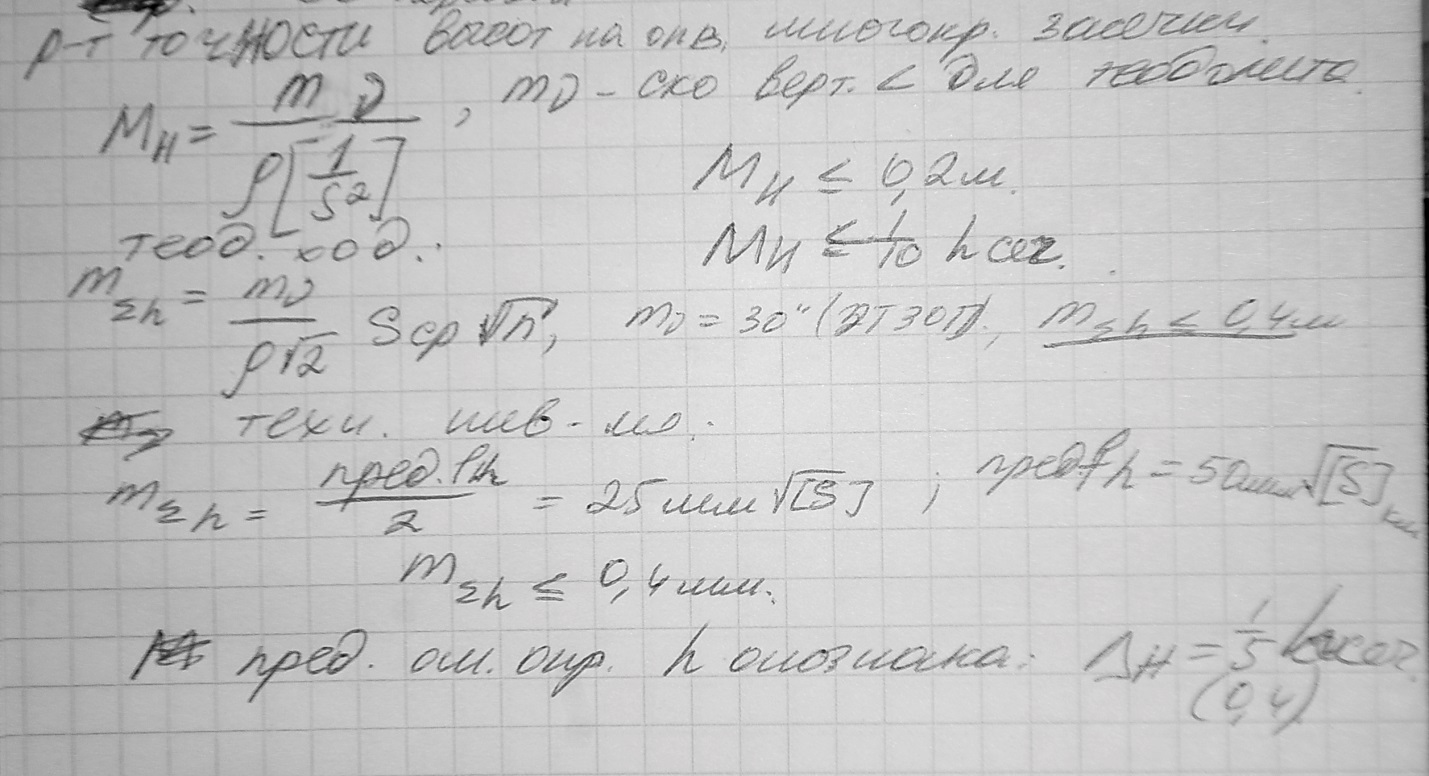 р-т точности высот на опв. многокр. засечки.
M_H = mν / ρ[1/S²], mν - ско верт. < для теодолита.
M_H ≤ 0,2м.
теод. ход:
M_H ≤ 1/10 h сеч.
m_Σh = mν / ρ√2 Sср √n, mν = 30" (2Т30П), m_Σh ≤ 0,4м
техн. нив-ие:
m_Σh = пред. fh / 2 = 25мм √[S] ; пред fh = 50мм √[S] км
m_Σh ≤ 0,4мм.
пред. ош. опр. h опознака: Δ_H = 1/5 h сеч.
(0,4)